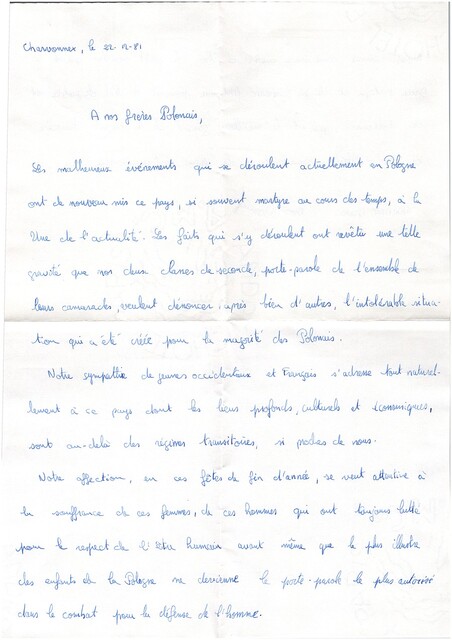 Charvonnex, le 22-12-81
A nos frères Polonais,
Les malheureux événements qui se déroulent actuellement en Pologne
ont de nouveau mis ce pays, si souvent martyre au cours des temps, à la
Une de l'actualité. Les faits qui s'y déroulent ont revêtu une telle
gravité que nos deux classes de seconde, porte-parole de l'ensemble de
leurs camarades, veulent dénoncer, après bien d'autres, l'intolérable situa-
tion qui a été créée pour la majorité des Polonais.
Notre sympathie de jeunes occidentaux et Français s'adresse tout naturel-
lement à ce pays dont les liens profonds, culturels et économiques,
sont au-delà des régimes transitoires, si proches de nous.
Notre affection, en ces fêtes de fin d'année, se veut attentive à
la souffrance de ces femmes, de ces hommes qui ont toujours lutté
pour le respect de l'être humain avant même que le plus illustre
des enfants de la Pologne ne devienne le porte-parole le plus autorisé
dans le combat pour la défense de l'homme.